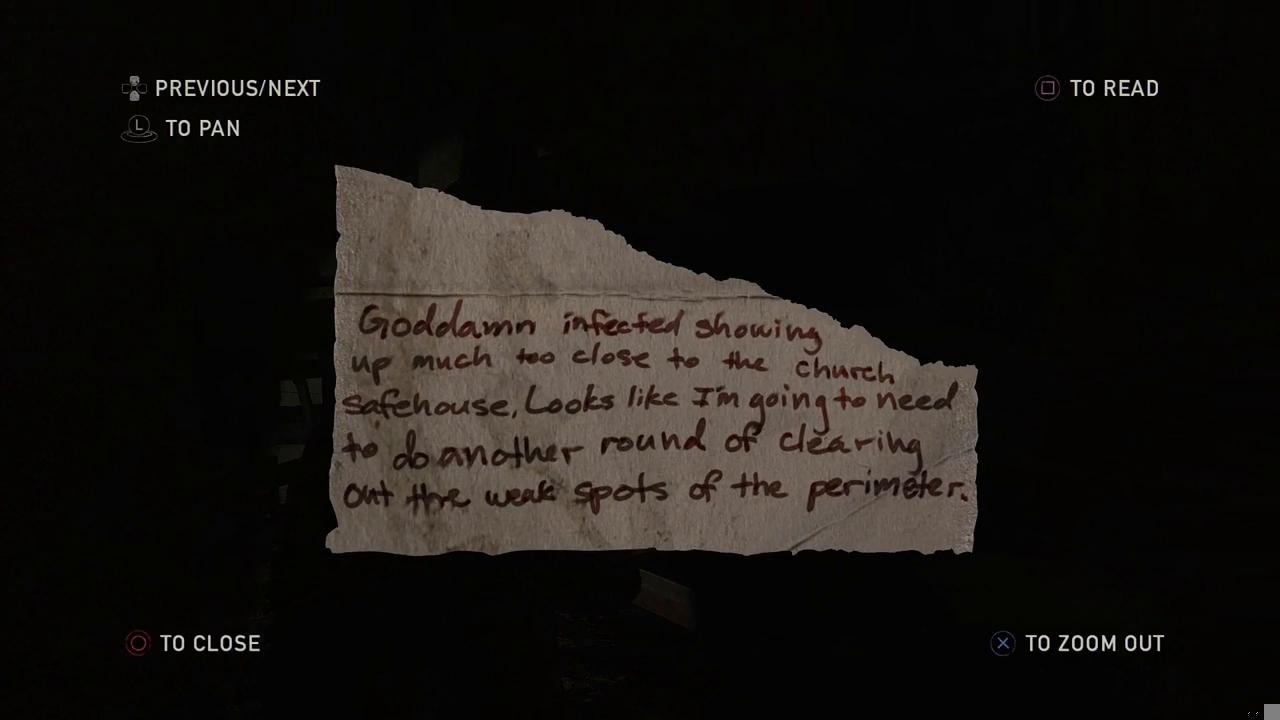 PREVIOUS/NEXT
TO READ
L TO PAN
Goddamn infected showing
up much too close to the church
safehouse, Looks like I'm going to need
to do another round of clearing
out the weak spots of the perimeter.
TO CLOSE
TO ZOOM OUT